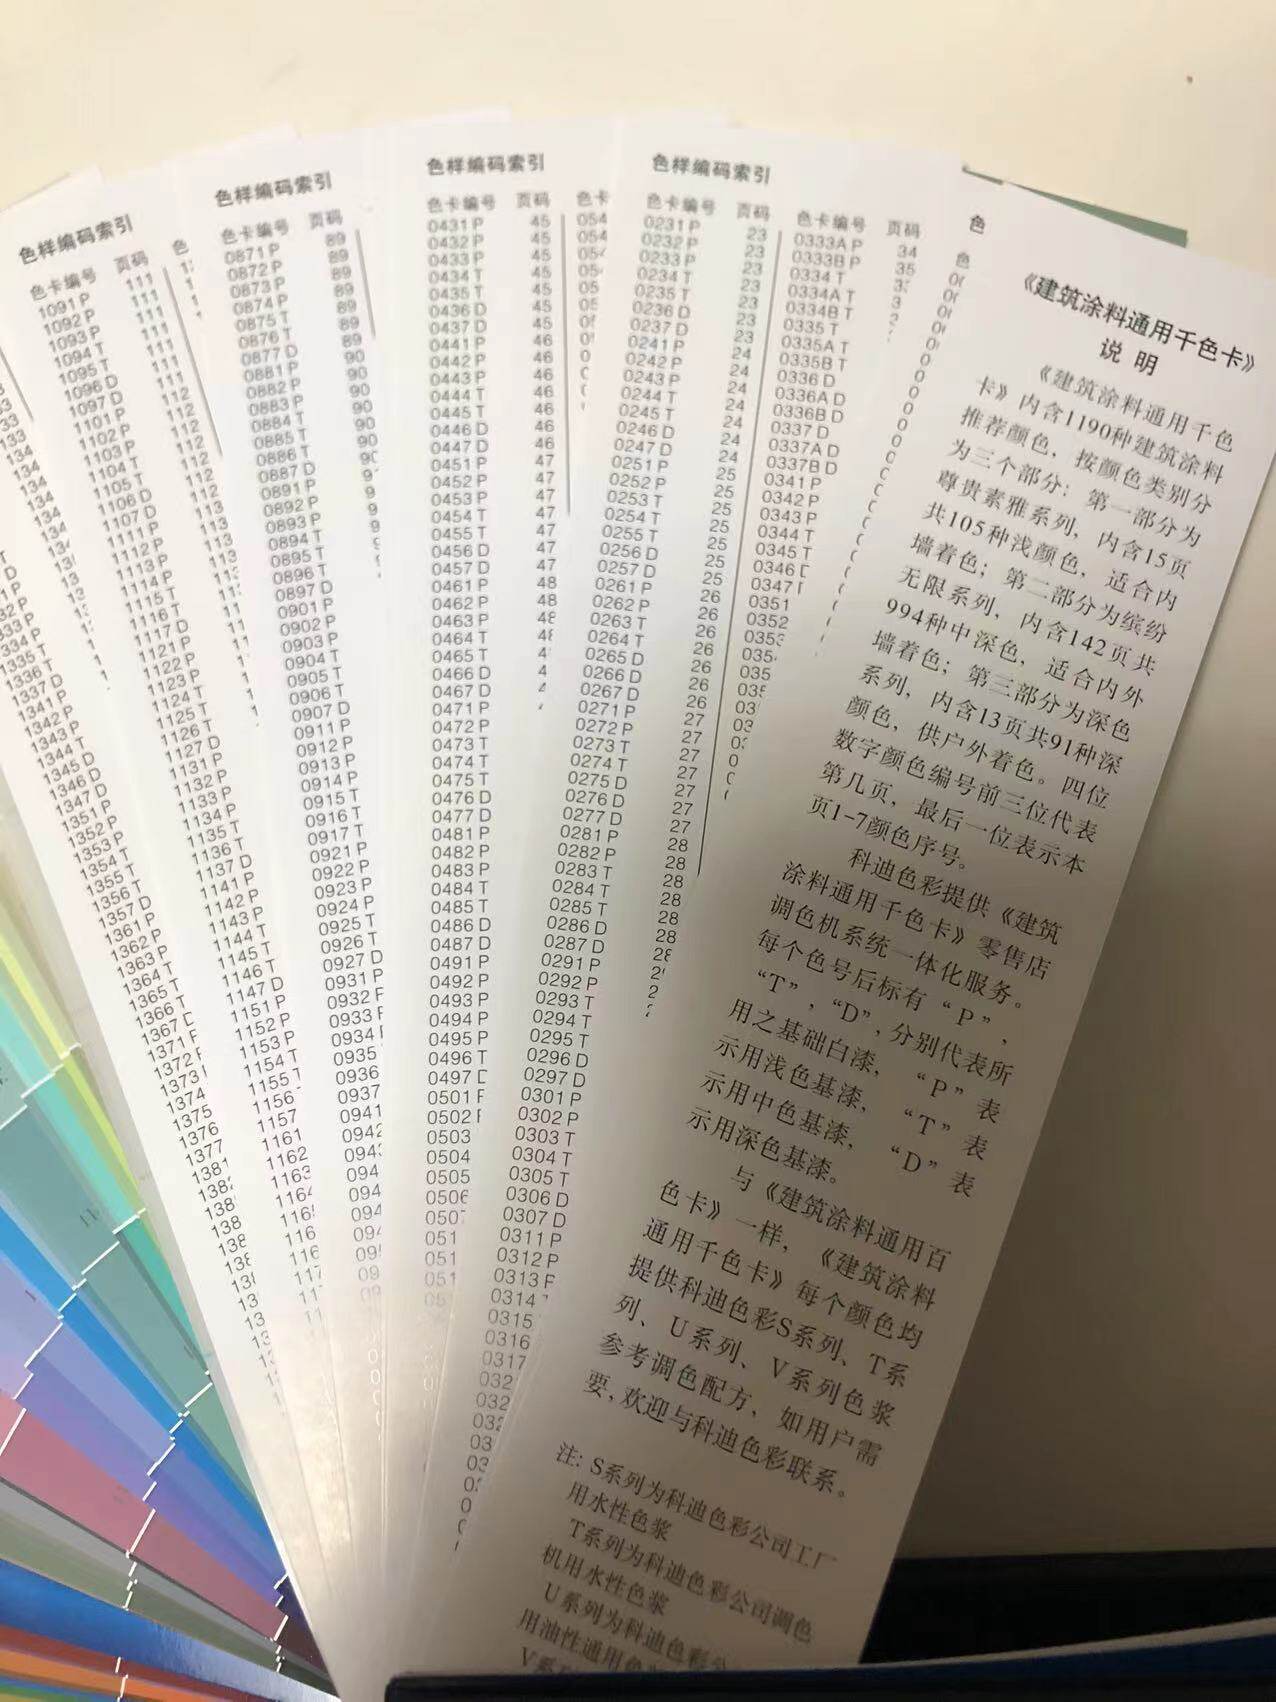 1335 T
1336 T
1337 D
1341 P
1342 P
1343 P
1344 T
1345 D
1346 D
1347 D
1351 P
1352 P
1353 P
1354 T
1355 T
1356 T
1357 D
1361 P
1362 P
1363 P
1364 T
1365 T
1366 T
1367
1371
1372
1373
1374
1375
1376
1377
1381
色样编码索引
色卡编号 页码
1091 P 111
1092 P 111
1093 P 111
1094 T 111
1095 T 111
1096 D 111
1097 D 111
1101 P 112
1102 P 112
1103 P 112
1104 T 112
1105 T 112
1106 D 112
1107 D 112
1111 P 113
1112 P 113
1113 P 113
1114 P
1115 T
1116 T
1117 D
1121 P
1122 P
1123 P
1124 T
1125 T
1126 T
1127 D
1131 P
1132 P
1133 P
1134 P
1135 T
1136 T
1137 D
1141 P
1142 P
1143 P
1144 T
1145 T
1146 T
1147 D
1151 P
1152 P
1153 P
1154 T
1155 T
1156
1157
1161
1162
1163
色样编码索引
色卡编号 页码
0871 P 89
0872 P 89
0873 P 89
0874 P 89
0875 T 89
0876 T 89
0877 D 89
0881 P 90
0882 P 90
0883 P 90
0884 T 90
0885 T 90
0886 T 90
0887 D
0891 P
0892 P
0893 P
0894 T
0895 T
0896 T
0897 D
0901 P
0902 P
0903 P
0904 T
0905 T
0906 T
0907 D
0911 P
0912 P
0913 P
0914 P
0915 T
0916 T
0917 T
0921 P
0922 P
0923 P
0924 P
0925 T
0926 T
0927 D
0931 P
0932
0933
0934
0935
0936
0937
0941
0942
色样编码索引
色卡编号 页码
0431 P 45
0432 P 45
0433 P 45
0434 T 45
0435 T 45
0436 D 45
0437 D 45
0441 P 46
0442 P 46
0443 P 46
0444 T 46
0445 T 46
0446 D 46
0447 D 46
0451 P 47
0452 P 47
0453 P 47
0454 T 47
0455 T 47
0456 D 47
0457 D 47
0461 P 48
0462 P 48
0463 P
0464 T
0465 T
0466 D
0467 D
0471 P
0472 P
0473 T
0474 T
0475 T
0476 D
0477 D
0481 P
0482 P
0483 P
0484 T
0485 T
0486 D
0487 D
0491 P
0492 P
0493 P
0494 P
0495 P
0496 T
0497
0501
0502
0503
0504
0505
0506
色样编码索引
色卡编号 页码
0231 P 23
0232 P 23
0233 P 23
0234 T 23
0235 T 23
0236 D 23
0237 D 23
0241 P 24
0242 P 24
0243 P 24
0244 T 24
0245 T 24
0246 D 24
0247 D 24
0251 P 25
0252 P 25
0253 T 25
0254 T 25
0255 T 25
0256 D 25
0257 D 25
0261 P 26
0262 P 26
0263 T 26
0264 T 26
0265 D 26
0266 D 26
0267 D 26
0271 P 27
0272 P 27
0273 T 27
0274 T 27
0275 D 27
0276 D 27
0277 D 27
0281 P 28
0282 P 28
0283 T 28
0284 T 28
0285 T 28
0286 D 28
0287 D
0291 P
0292 P
0293 T
0294 T
0295 T
0296 D
0297 D
0301 P
0302 P
0303 T
0304 T
0305 T
0306 D
0307 D
0311 P
0312 P
0313
0314
0315
0316
0317
色卡编号 页码
0333A P 34
0333B P 35
0334 T
0334A T
0334B T
0335 T
0335A T
0335B T
0336 D
0336A D
0336B D
0337 D
0337A D
0337B D
0341 P
0342 P
0343 P
0344 T
0345 T
0346
0347
0351
0352
《建筑涂料通用千色卡》
说 明
《建筑涂料通用千色
卡》内含1190种建筑涂料
推荐颜色，按颜色类别分
为三个部分：第一部分为
尊贵素雅系列，内含15页
共105种浅颜色，适合内
墙着色；第二部分为缤纷
无限系列，内含142页共
994种中深色，适合内外
墙着色；第三部分为深色
系列，内含13页共91种深
颜色，供户外着色。四位
数字颜色编号前三位代表
第几页，最后一位表示本
页1-7颜色序号。
科迪色彩提供《建筑
涂料通用千色卡》零售店
调色机系统一体化服务。
每个色号后标有“P”，
“T”，“D”，分别代表所
用之基础白漆，“P”表
示用浅色基漆，“T”表
示用中色基漆，“D”表
示用深色基漆。
与《建筑涂料通用百
色卡》一样，《建筑涂料
通用千色卡》每个颜色均
提供科迪色彩S系列、T系
列、U系列、V系列色浆
参考调色配方，如用户需
要，欢迎与科迪色彩联系。
注：S系列为科迪色彩公司工厂
用水性色浆
T系列为科迪色彩公司调色
机用水性色浆
U系列为科迪色彩
用油性通用色